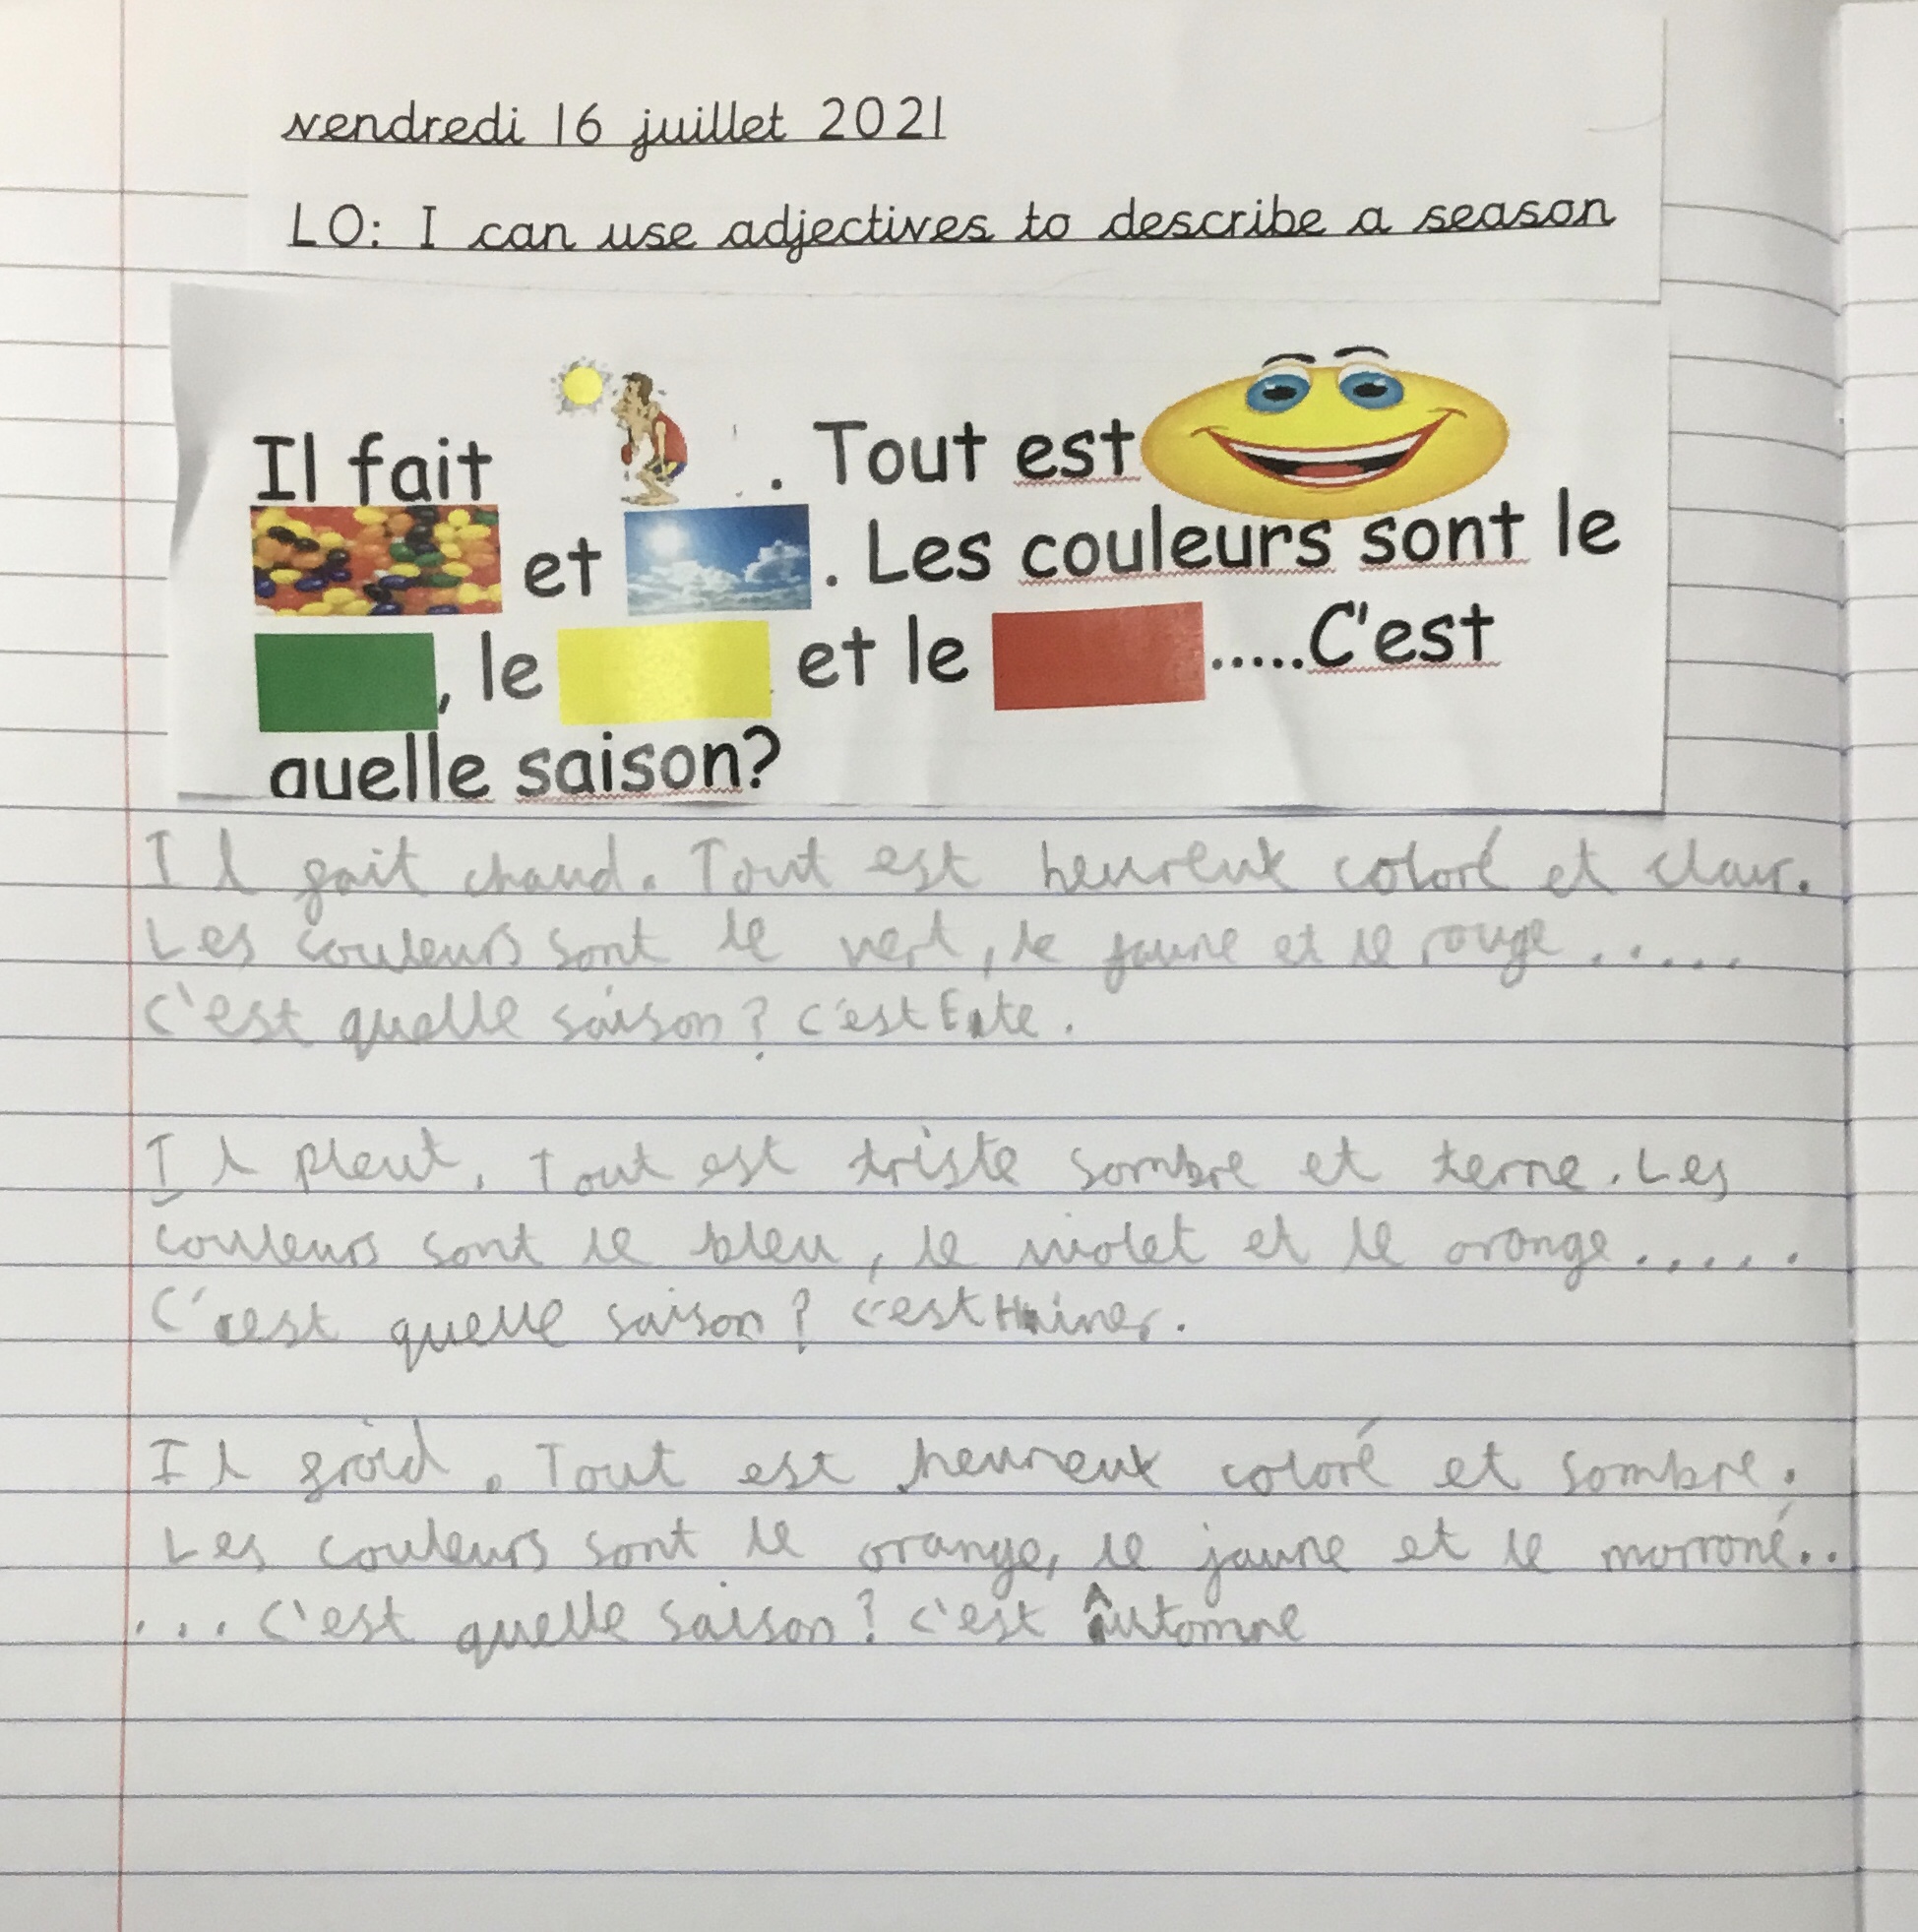 vendredi 16 juillet 2021
LO: I can use adjectives to describe a season
Il fait . Tout est
et . Les couleurs sont le
, le et le .....C'est
quelle saison?
Il fait chaud. Tout est heureux coloré et clair.
Les couleurs sont le vert, le jaune et le rouge.....
C'est quelle saison? C'est Ete.
Il pleut. Tout est triste sombre et terne. Les
couleurs sont le bleu, le violet et le orange.....
C'est quelle saison? c'est Hiver.
Il froid. Tout est heureux coloré et sombre.
Les couleurs sont le orange, le jaune et le morroné..
...C'est quelle saison? C'est Âutomne